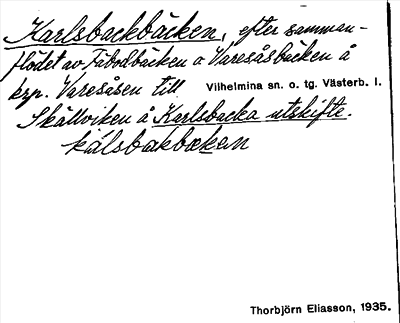 Karlsbackbäcken, efter samman-
flödet av Fäbodbäcken o Varesåsbäcken å
krp. Varesåsen till Vilhelmina sn. o. tg. Västerb. l.
Skällviken å Karlsbacka utskifte.
kálsbakbækan
Thorbjörn Eliasson, 1935.